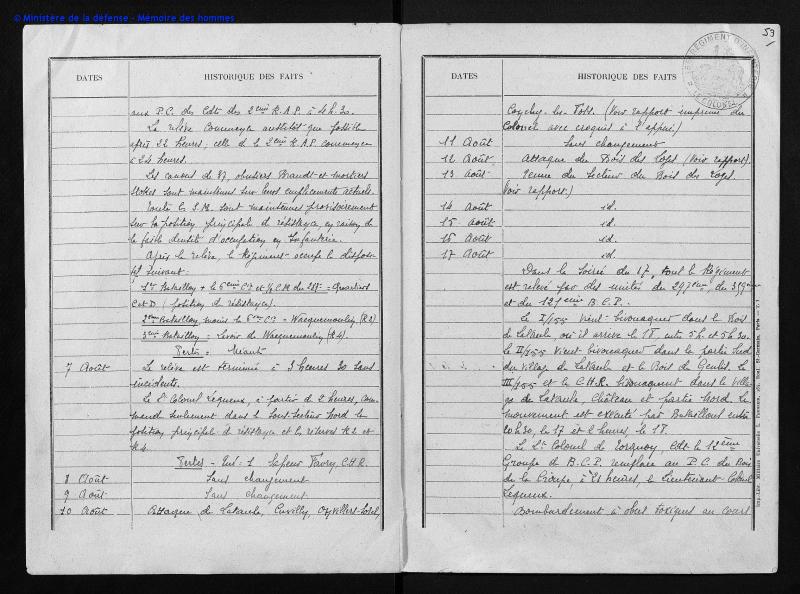 © Ministère de la défense - Mémoire des hommes
59
DATES
HISTORIQUE DES FAITS
aux P.C. des Cdts des 2ème R.A.P. à 4h.30.
La relève commence aussitôt que possible
après 22 heures; celle de la 2ème R.A.P. commença
à 24 heures.
Les canons de 37, obusiers Brandt et mortiers
Stokes sont maintenus sur leurs emplacements actuels.
Toutes les S.M. sont maintenues provisoirement
sur la position principale de résistance, en raison de
la faible densité d'occupation en Infanterie.
Après la relève, le Régiment occupe le disposi-
tif suivant:
1er Bataillon + la 6ème Cie et 1/2 C.M. du 287e = Quartiers
C et D (position de résistance).
2ème Bataillon, moins la 6ème Cie = Wacquemoulin (R2)
3ème Bataillon = de Wacquemoulin (R4).
Pertes = Néant
7 Août
La relève est terminée à 3 heures 30 sans
incidents.
Le Lt Colonel Lequeux, à partir de 2 heures, com-
mande seulement dans le Sous-Secteur Nord la
position principale de résistance et les réserves R2 et
R4.
Pertes = 1 Sapeur Favry, C.H.R.
8 Août
Sans changement
9 Août
Sans changement
10 Août
Attaque de Lataule, Cuvilly, Orvillers-Sorel,
DATES
HISTORIQUE DES FAITS
Conchy-les-Pots. (Voir rapport imprimé du
Colonel avec croquis à l'appui)
11 Août
Sans changement
12 Août
Attaque du Bois des Loges. (Voir rapport).
13 Août
Tenue du Secteur du Bois des Loges.
Voir rapport.)
14 Août
id.
15 Août
id.
16 Août
id.
17 Août
id.
Dans la Soirée du 17, tout le Régiment
est relevé par des unités du 297ème, du 359ème
et du 121ème B.C.P.
Le I/155 vient bivouaquer dans le Bois
de Lataule, où il arrive le 18, entre 5h. et 5h30.
le II/155 vient bivouaquer dans la partie Sud
du village de Lataule et le Bois de Genlis. Le
III/155 et la C.H.R. bivouaquent dans le villa-
ge de Lataule, Château et partie Nord. Le
mouvement est exécuté par Bataillons entre
20h30, le 17 et 2 heures, le 18.
Le Lt Colonel de Torquay, Cdt le 12ème
Groupe de B.C.P. remplace au P.C. du Bois
de la Croupe, à 21 heures, le Lieutenant-Colonel
Lequeux.
Bombardement à obus toxiques au court